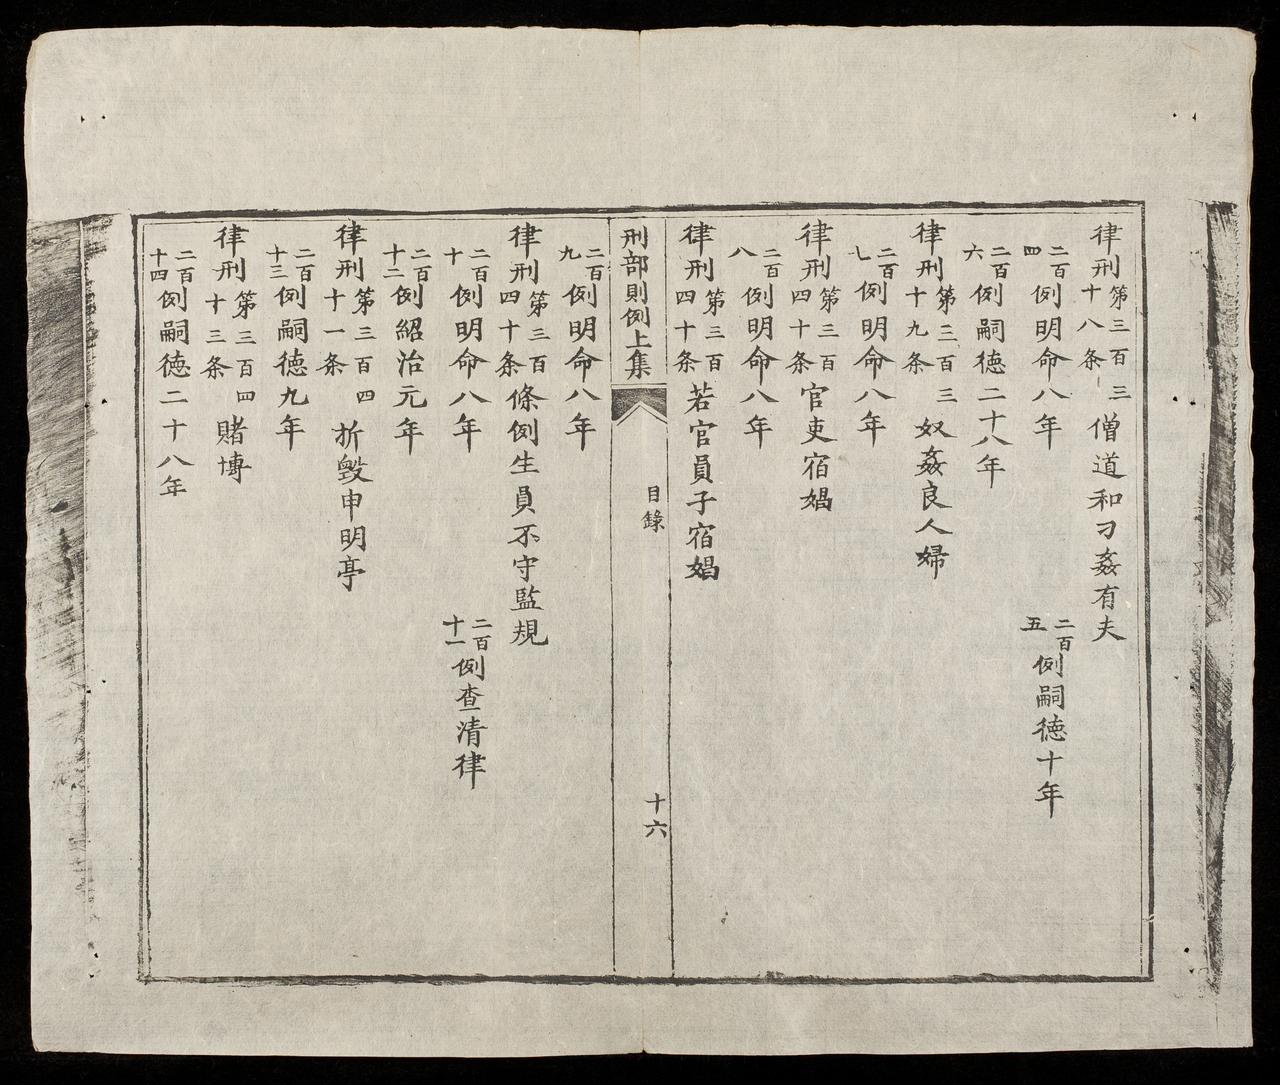 律刑第三百三十八条僧道和刁姦有夫
二百四例明命八年　二百五例嗣徳十年
二百六例嗣徳二十八年
律刑第三百三十九条奴姦良人婦
二百七例明命八年
律刑第三百四十条官吏宿娼
二百八例明命八年
律刑第三百四十条若官員子宿娼
刑部則例上集　目錄　十六
二百九例明命八年
律刑第三百四十条條例生員不守監規
二百十例明命八年　二百十一例查清律
二百十二例紹治元年
律刑第三百四十一条折毀申明亭
二百十三例嗣徳九年
律刑第三百四十三条賭博
二百十四例嗣徳二十八年